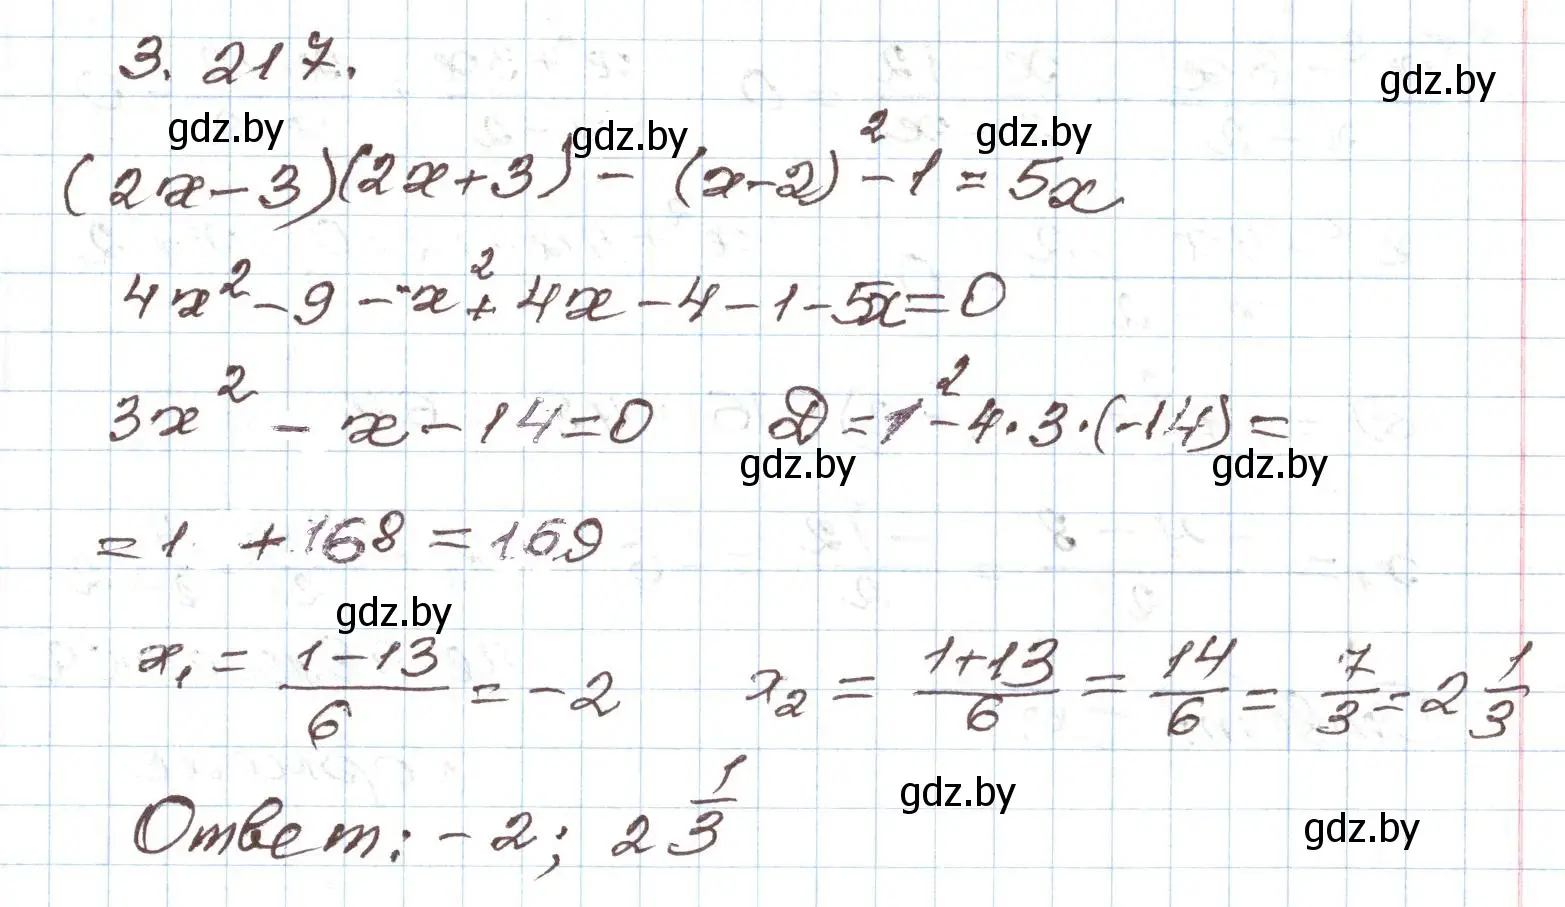 3.217.
gdz.by
gdz.by gdz.by gdz.by
(2x-3)(2x+3) - (x-2)² - 1 = 5x
4x² - 9 - x² + 4x - 4 - 1 - 5x = 0
3x² - x - 14 = 0 D = 1² - 4·3·(-14) =
gdz.by gdz.by
= 1 + 168 = 169
gdz.by
x₁ = (1-13)/6 = -2 x₂ = (1+13)/6 = 14/6 = 7/3 = 2 1/3
gdz.by
Ответ: -2; 2 1/3
gdz.by